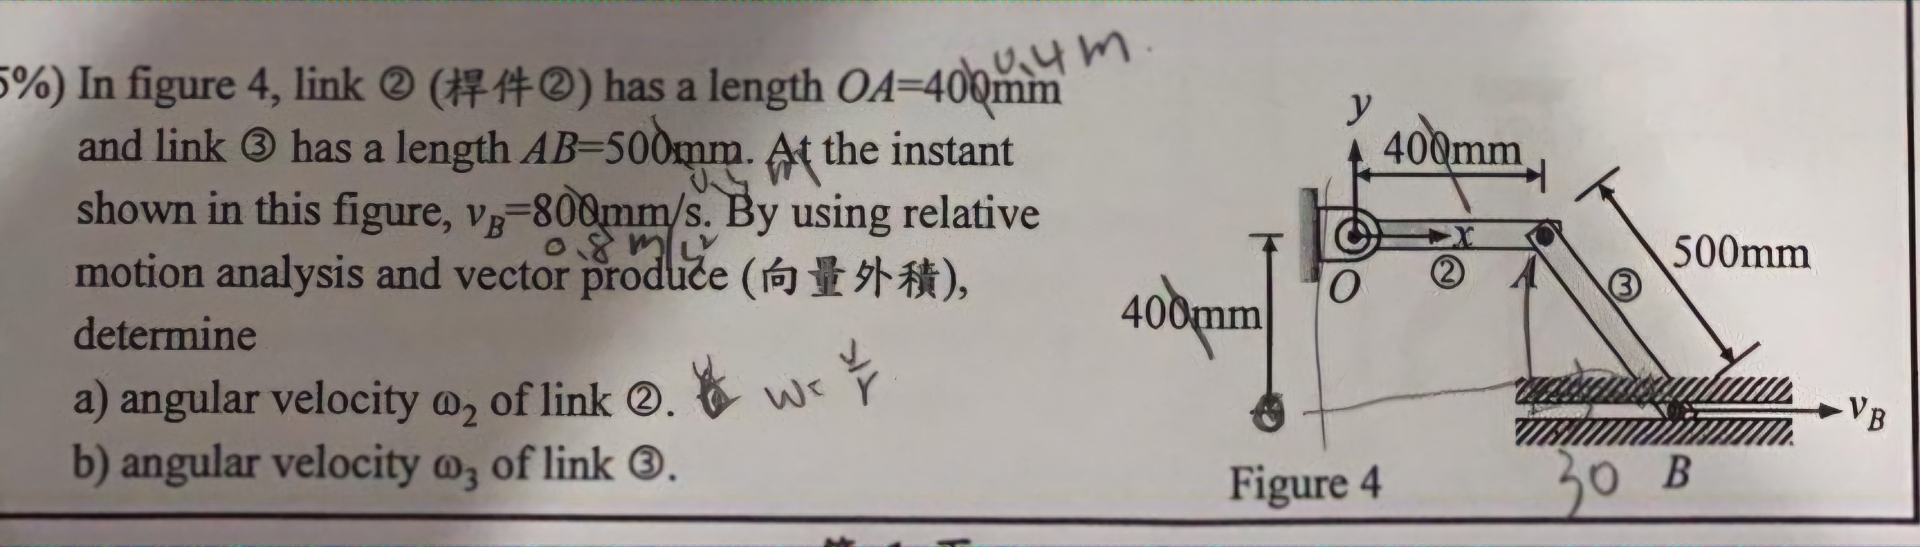 5%) In figure 4, link ② (桿件②) has a length OA=400mm
0.4 m.
and link ③ has a length AB=500mm. At the instant
shown in this figure, vB=800mm/s. By using relative
0.8 m/s
motion analysis and vector produce (向量外積),
determine
a) angular velocity ω2 of link ②.
b) angular velocity ω3 of link ③.
y
400mm
x
O
②
A
③
500mm
400mm
vB
30
B
Figure 4